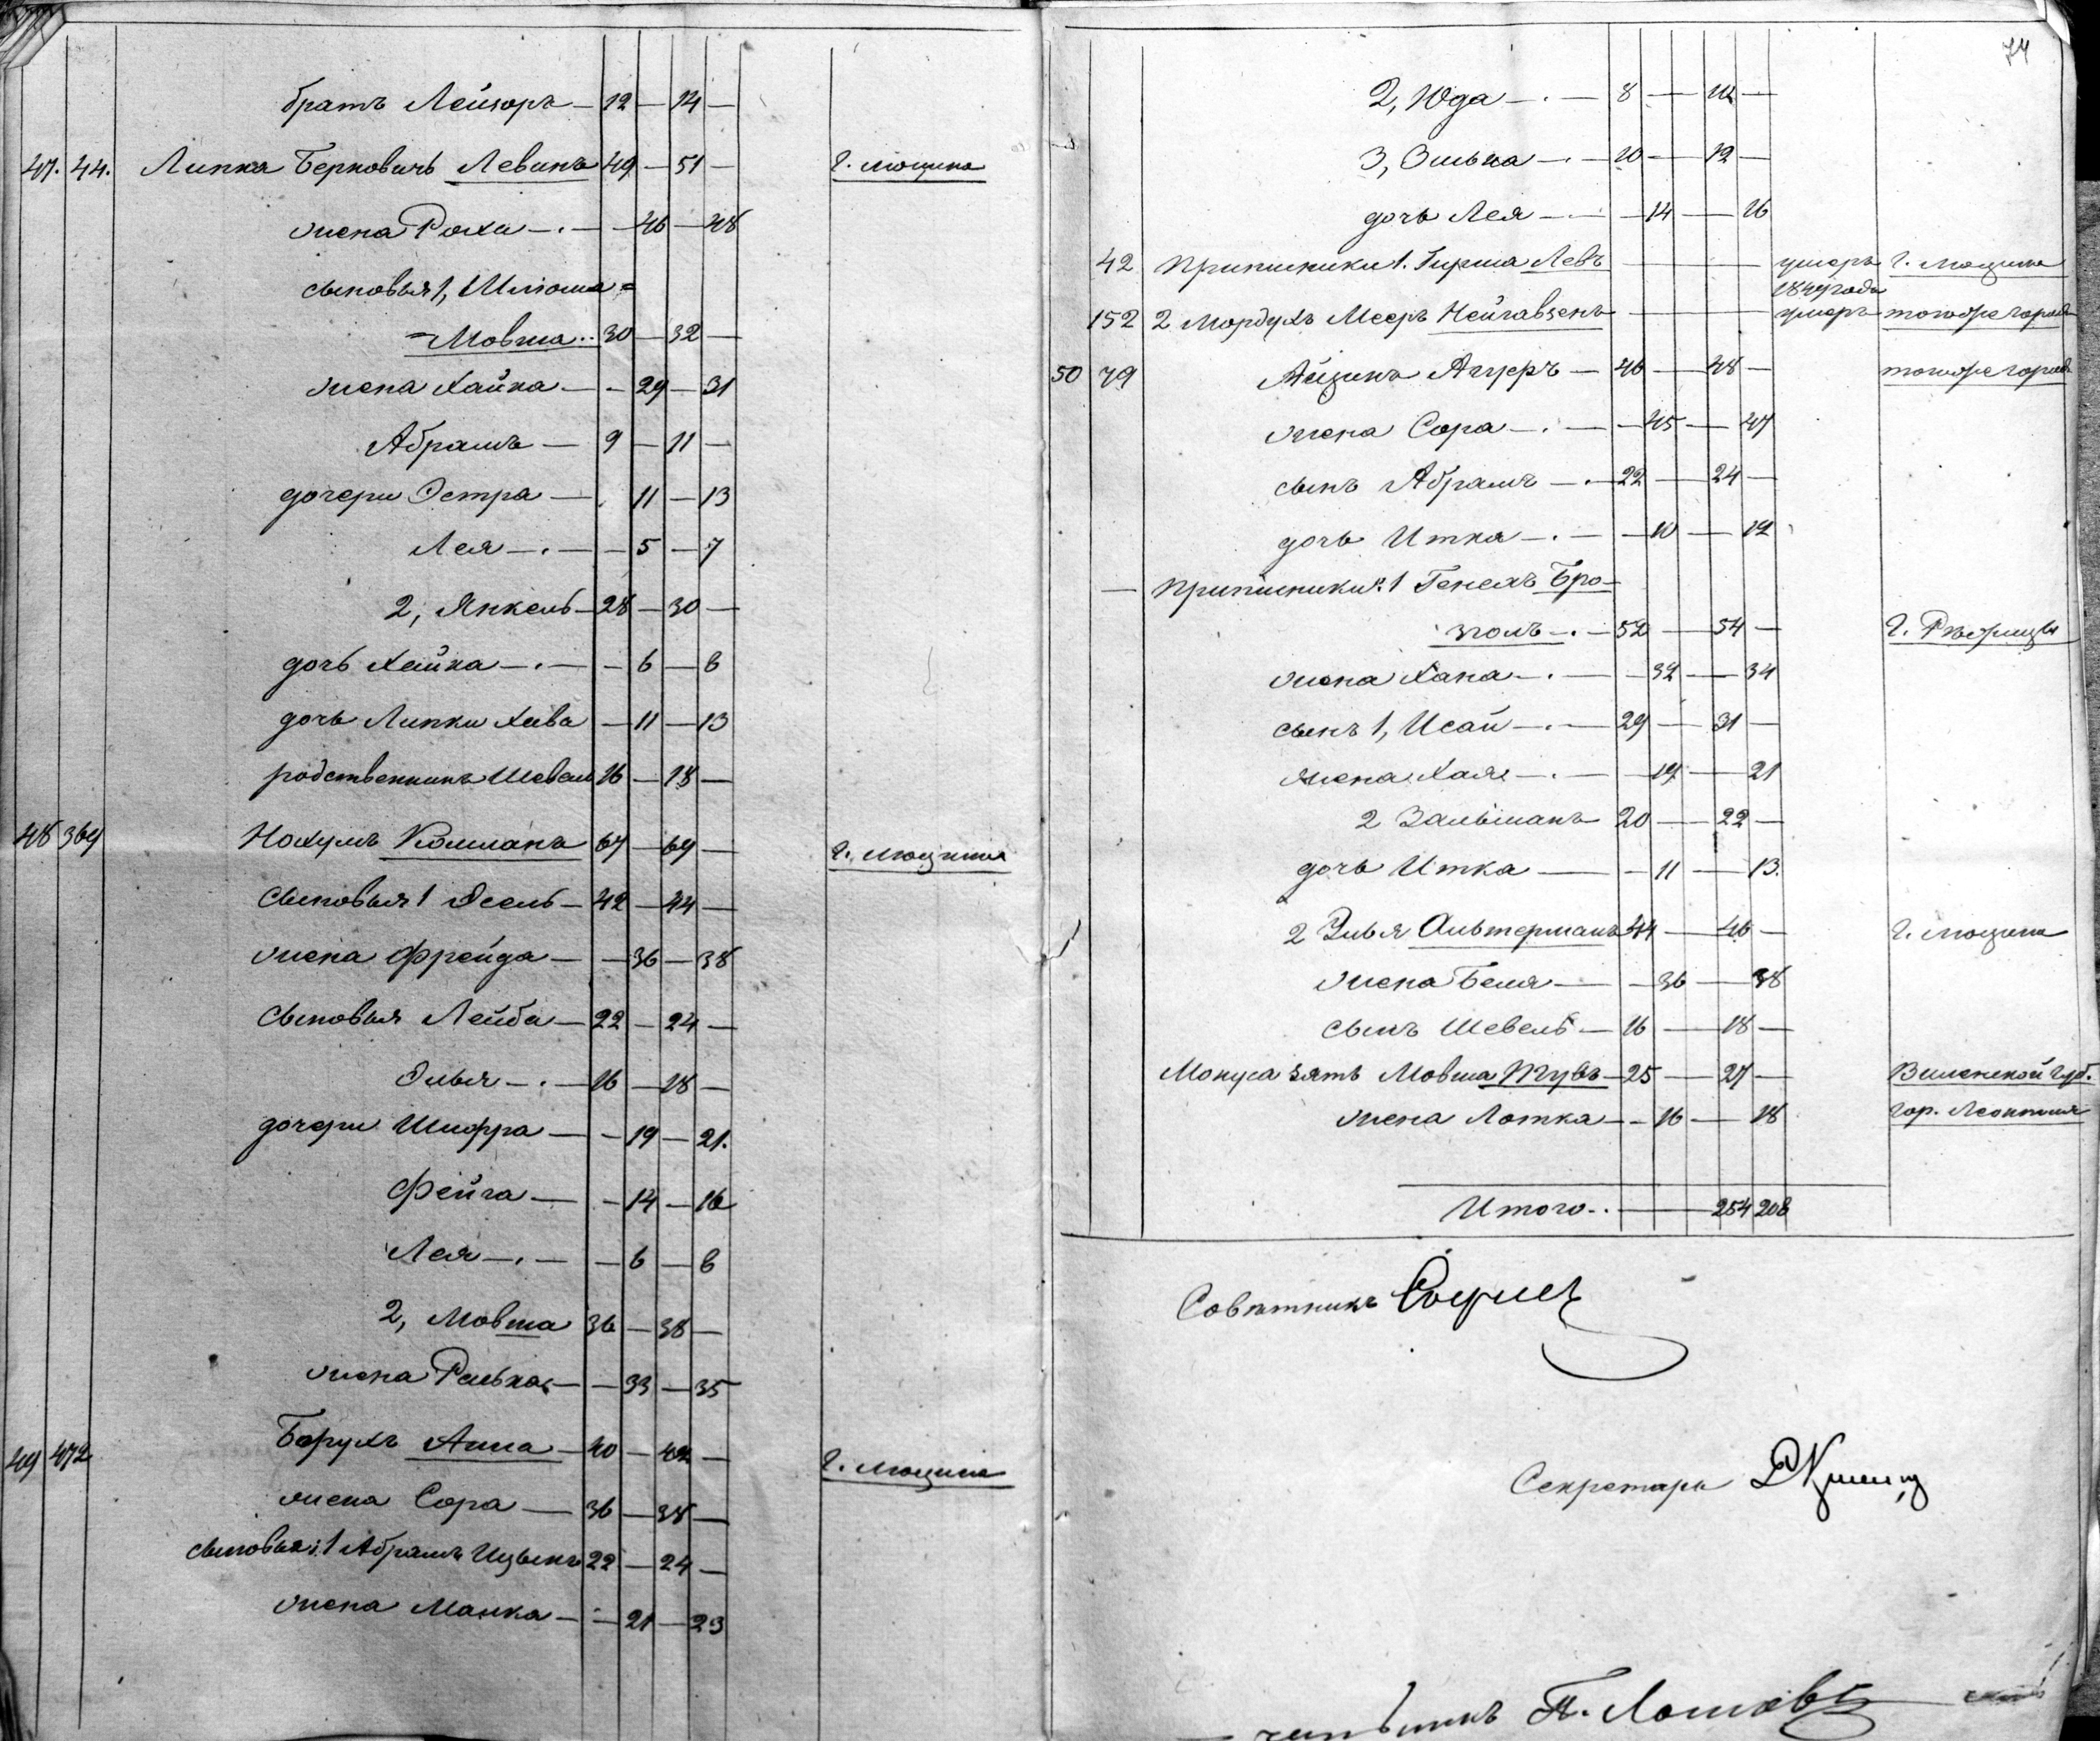 братъ Лейзоръ — 12 — 14 —
47. 44. Липка Берковичъ Левинъ 49 — 51 — г. Люцина
жена Роха — 46 — 48
сыновья 1, Шлиома =
= Мовша .. 30 — 32 —
жена Хайка — 29 — 31
Абрамъ — 9 — 11 —
дочери Эстра — 11 — 13
Лея — 5 — 7
2, Янкель — 28 — 30 —
дочь Хайка — 6 — 8
дочь Липки Хава — 11 — 13
родственникъ Шевель 16 — 18 —
48 369 Нохумъ Колманъ 67 — 69 — г. Люцина
сыновья 1 Осель — 42 — 44 —
жена Фрейда — 36 — 38
сыновья Лейба — 22 — 24 —
Элья — 16 — 18 —
дочери Шифра — 19 — 21.
Фейга — 14 — 16
Лея — 6 — 8
2, Мовша 36 — 38 —
жена Ралька — 33 — 35
49 472 Борухъ Анша — 40 — 42 — г. Люцина
жена Сора — 36 — 38 —
сыновья: 1 Абрамъ Ицыкъ 22 — 24 —
жена Манка — 21 — 23
74
2, Юда — 8 — 10 —
3, Элька — 10 — 12 —
дочь Лея — 14 — 16
42 Приписники 1. Гирша Левъ — умеръ г. Люцина
1849 года
152 2 Мордухъ Мееръ Нейгавзенъ — умеръ того же города
50 79 Айзикъ Агуфъ — 46 — 48 — того же города
жена Сора — 45 — 47
сынъ Абрамъ — 22 — 24 —
дочь Итка — 10 — 12
— Приписники: 1 Генехъ Бро-
золъ — 52 — 54 — г. Рѣжицы
жена Хана — 32 — 34
сынъ 1, Исай — 29 — 31 —
жена Хая — 19 — 21
2 Зальманъ 20 — 22 —
дочь Итка — 11 — 13.
2 Элья Альтерманъ 44 — 46 — г. Люцина
жена Беля — 36 — 38
сынъ Шевель — 16 — 18 —
Монуса зять Мовша Тувъ — 25 — 27 — Виленской Губ.
жена Лотка — 16 — 18 гор.
Итого .. — 254 208
Совѣтникъ
Секретарь
П.